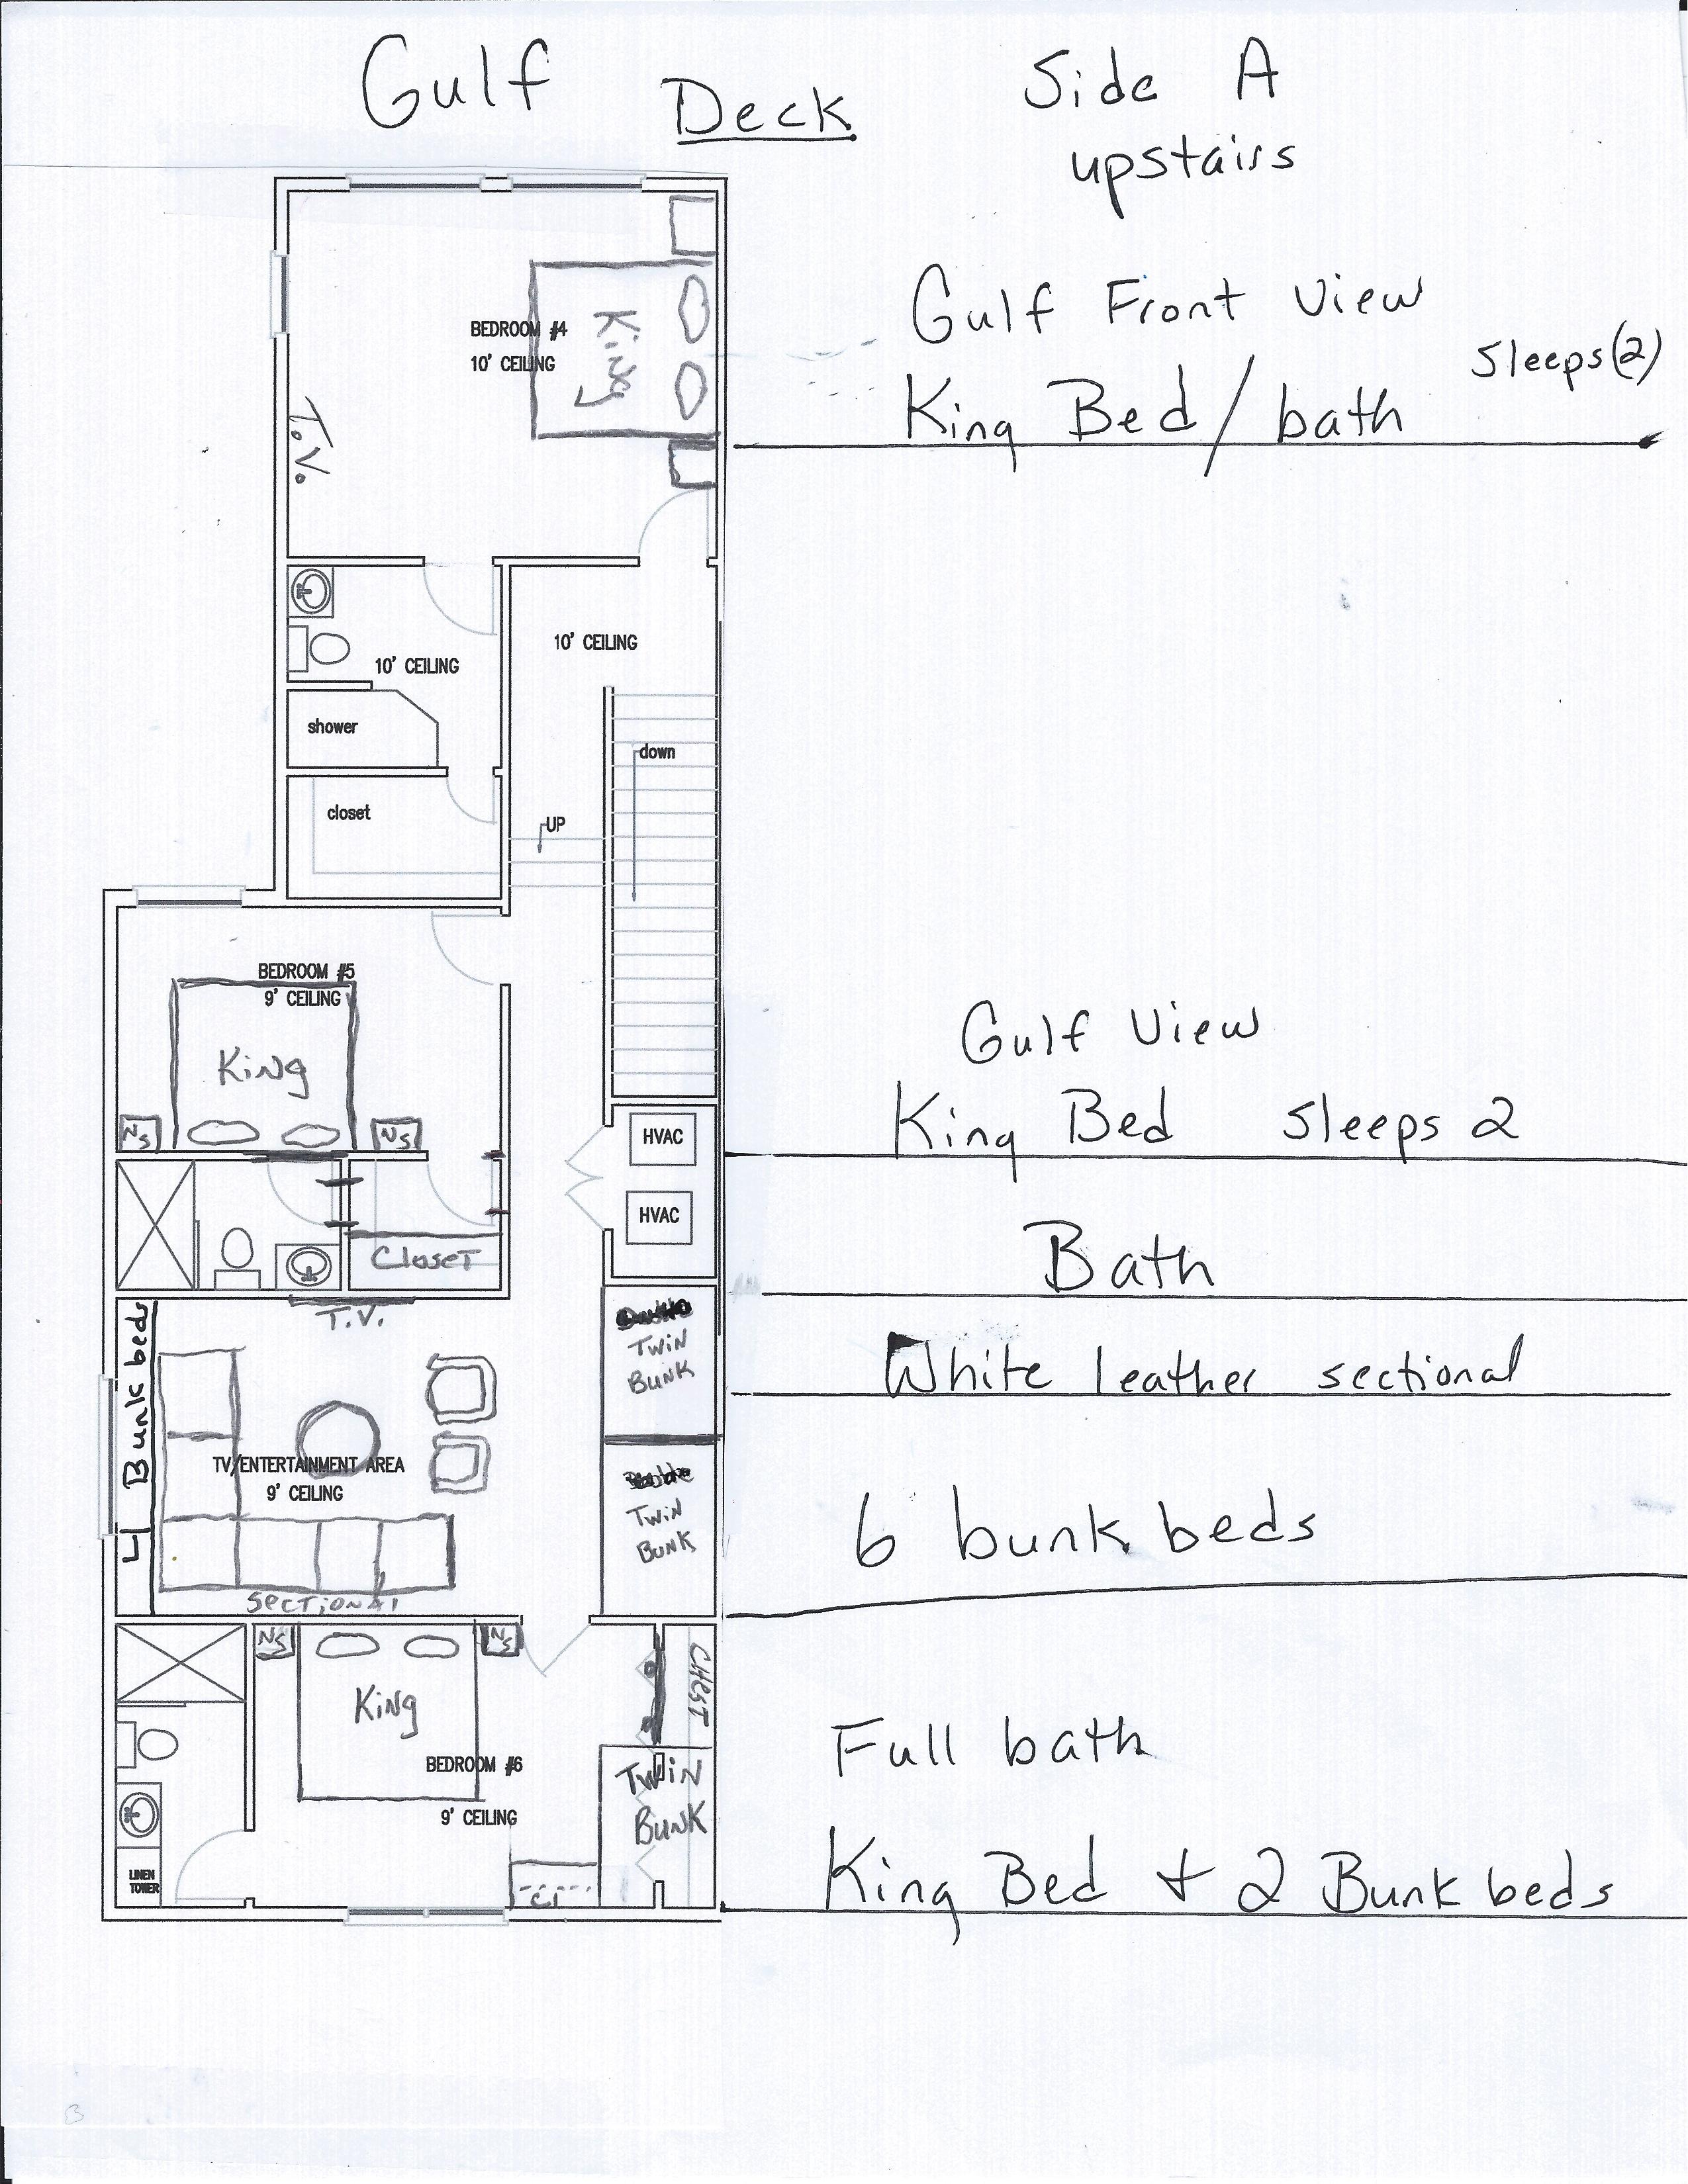 Gulf
Deck
Side A
upstairs
BEDROOM #4
10' CEILING
King
T.V.
Gulf Front View
Sleeps(2)
King Bed/bath
10' CEILING
10' CEILING
shower
down
closet
UP
BEDROOM #5
9' CEILING
King
NS
NS
HVAC
HVAC
Closet
Gulf View
King Bed Sleeps 2
Bath
T.V.
4 Bunk beds
TWIN
BUNK
White leather sectional
TV/ENTERTAINMENT AREA
9' CEILING
TWIN
BUNK
6 bunk beds
SECTIONAL
NS
NS
King
CHEST
BEDROOM #6
9' CEILING
TWIN
BUNK
Full bath
LINEN
TOWER
King Bed + 2 Bunk beds
B